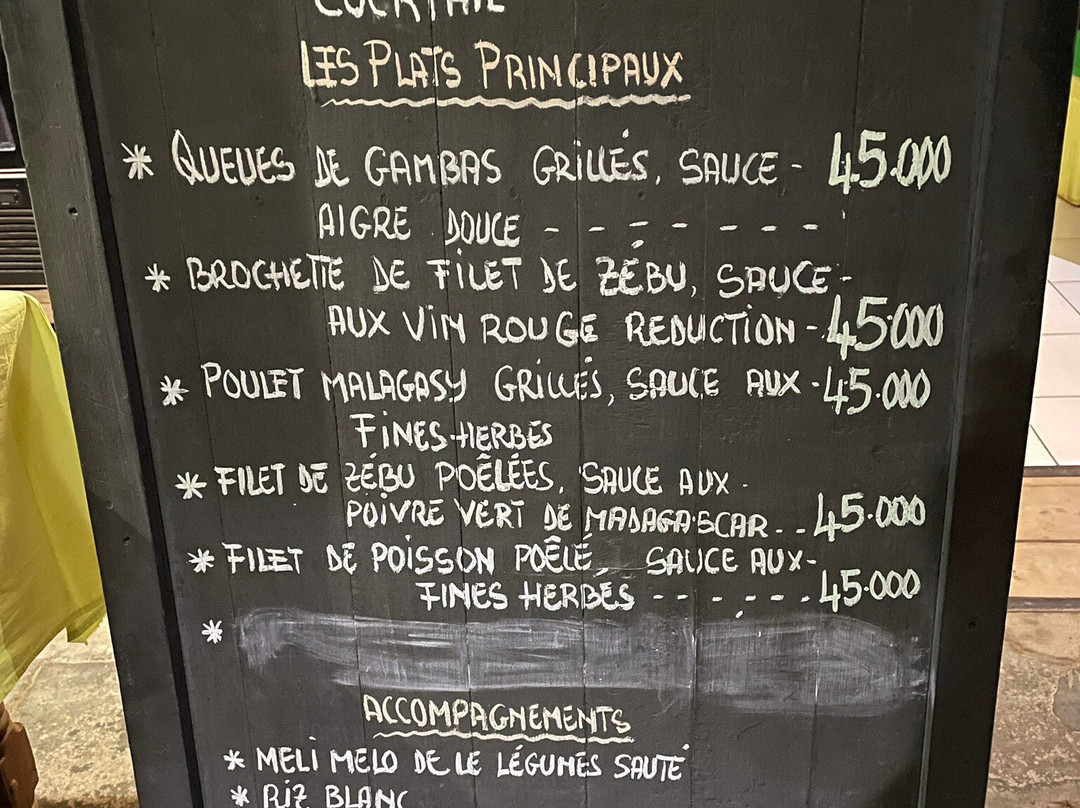 COCKTAIL
LES PLATS PRINCIPAUX
* QUEUES DE GAMBAS GRILLÉS, SAUCE - 45.000
AIGRE DOUCE - - - - - - -
* BROCHETTE DE FILET DE ZÉBU, SAUCE -
AUX VIN ROUGE REDUCTION - 45.000
* POULET MALAGASY GRILLÉS, SAUCE AUX - 45.000
FINES-HERBES
* FILET DE ZÉBU POÊLÉES, SAUCE AUX -
POIVRE VERT DE MADAGASCAR - - 45.000
* FILET DE POISSON POÊLÉ, SAUCE AUX -
FINES HERBES - - - - - - 45.000
*
ACCOMPAGNEMENTS
* MELI MELO DE LE LÉGUMES SAUTÉ
* RIZ BLANC